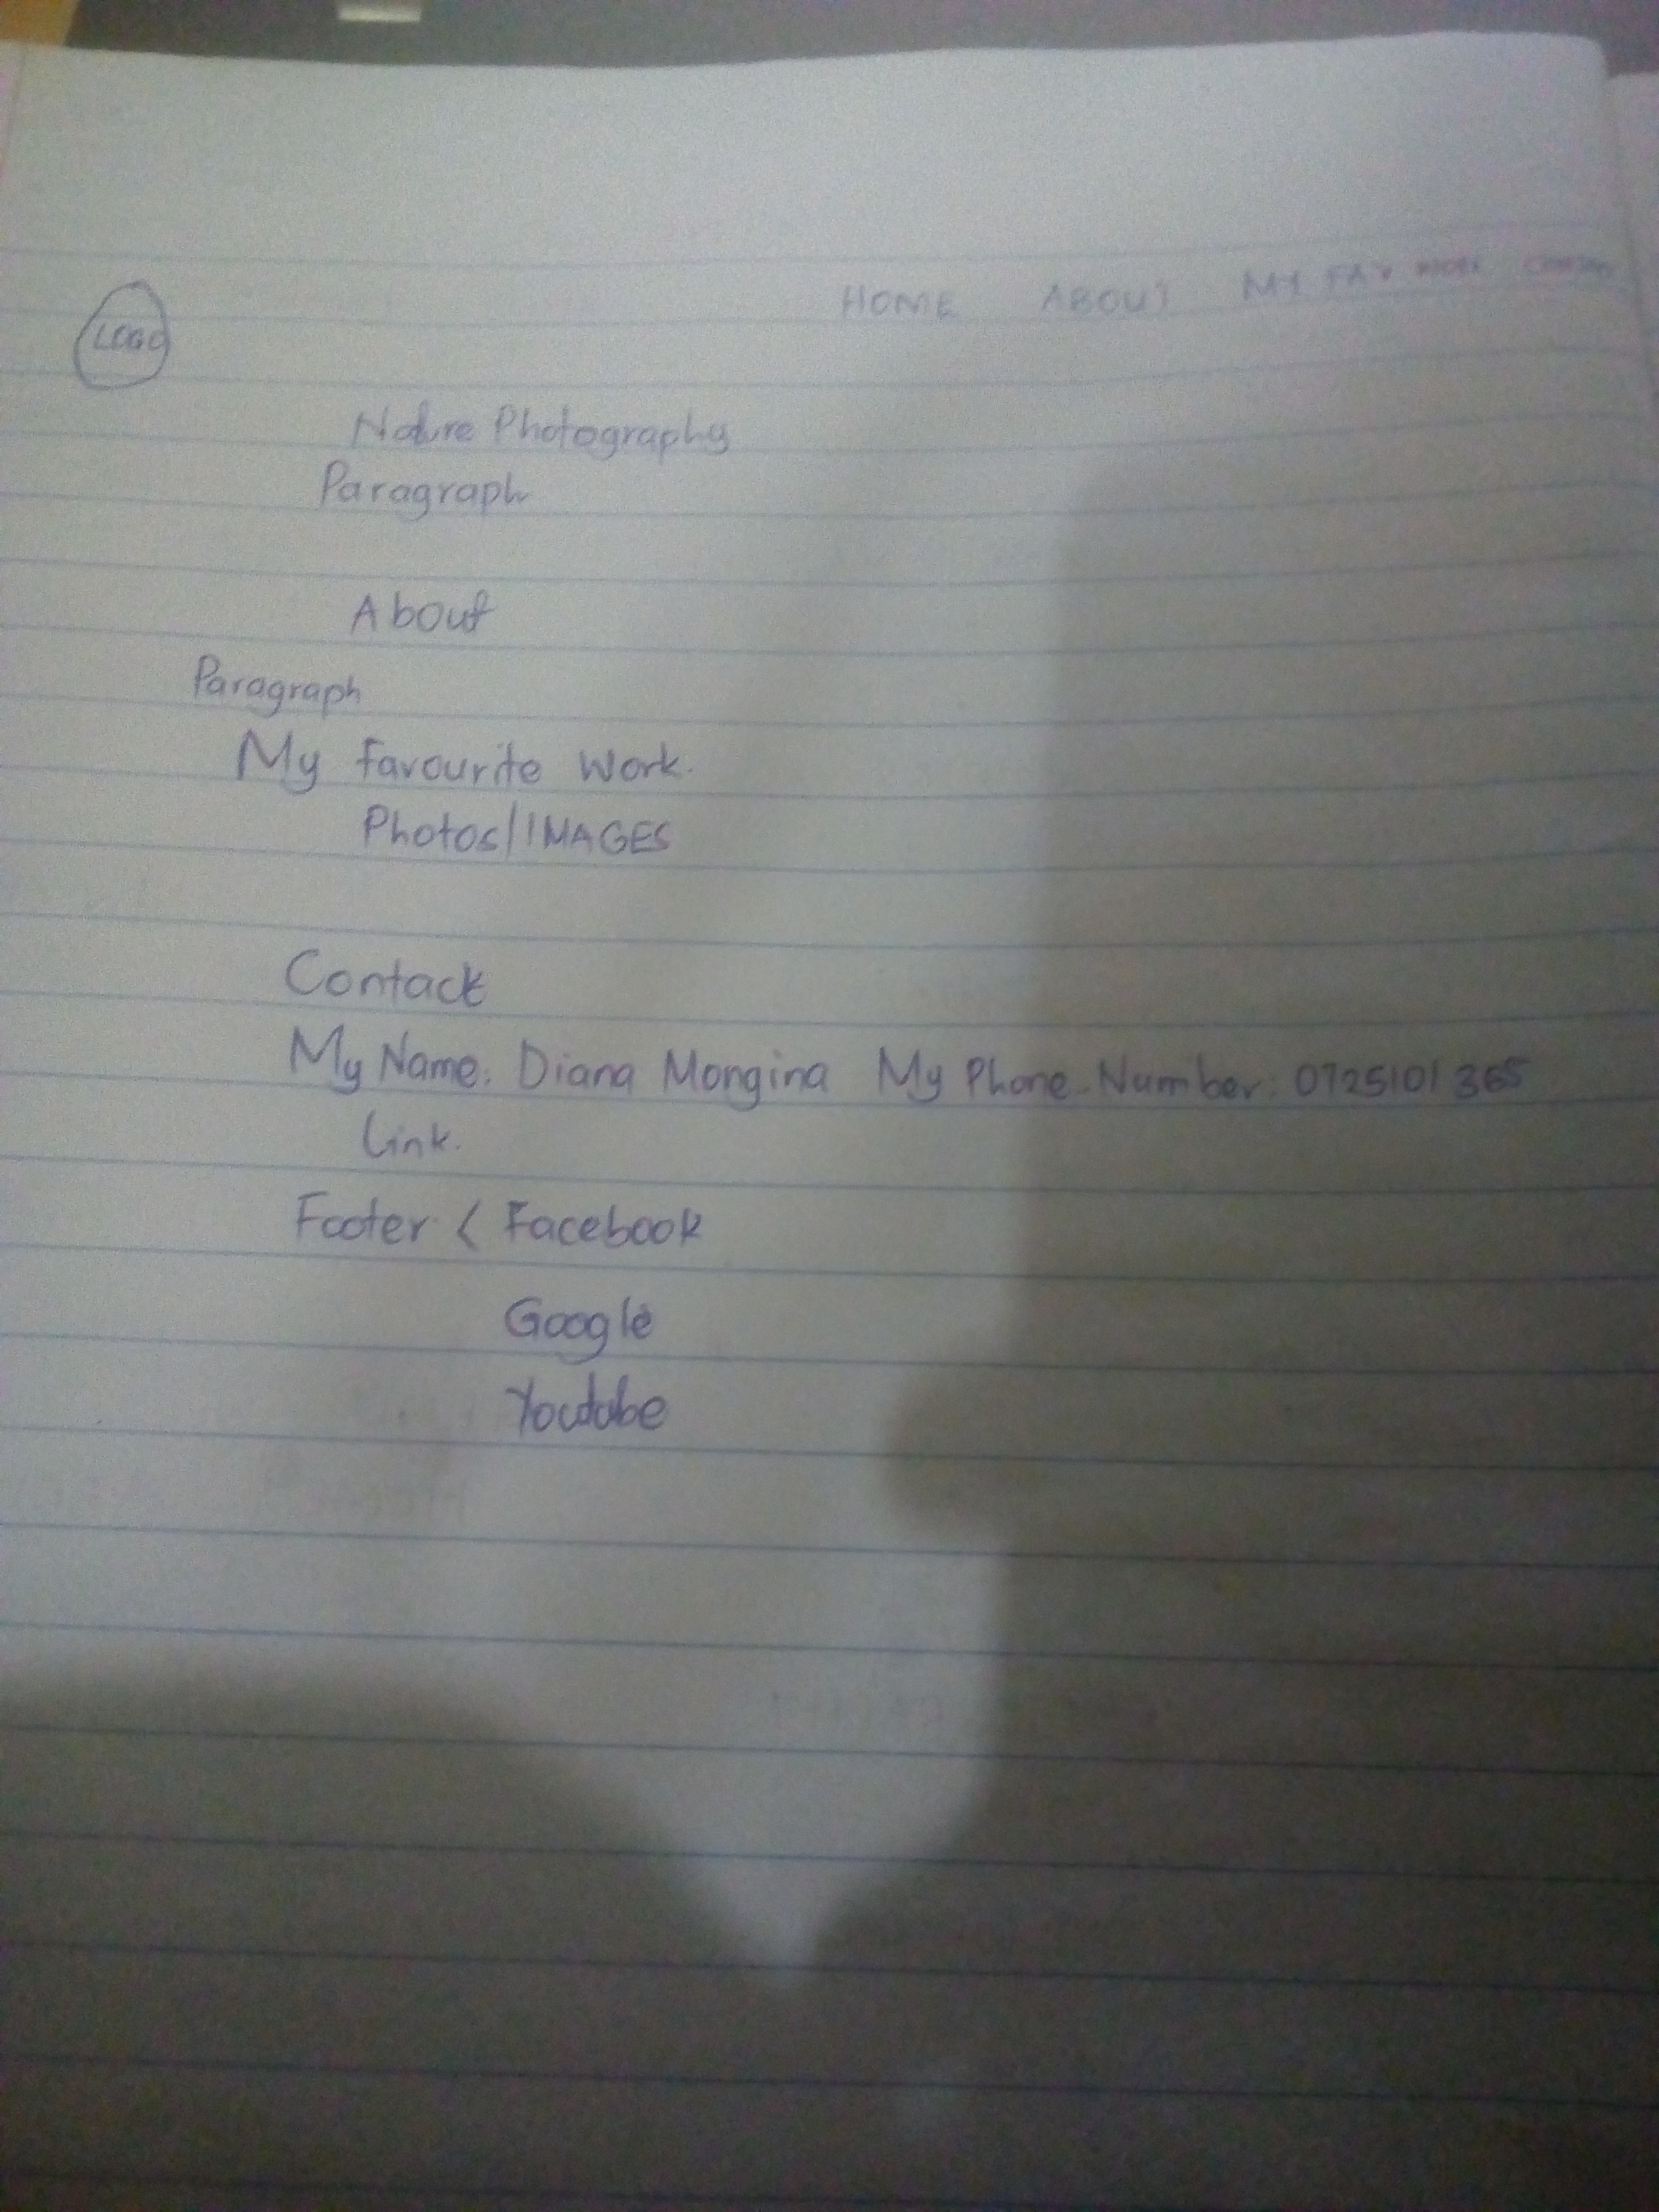 HOME ABOUT MY FAV WORK
LOGO
Nature Photography
Paragraph
About
Paragraph
My Favourite Work.
Photos/IMAGES
Contack
My Name: Diana Mongina My Phone Number: 0725101365
Link.
Footer < Facebook
Google
Youtube